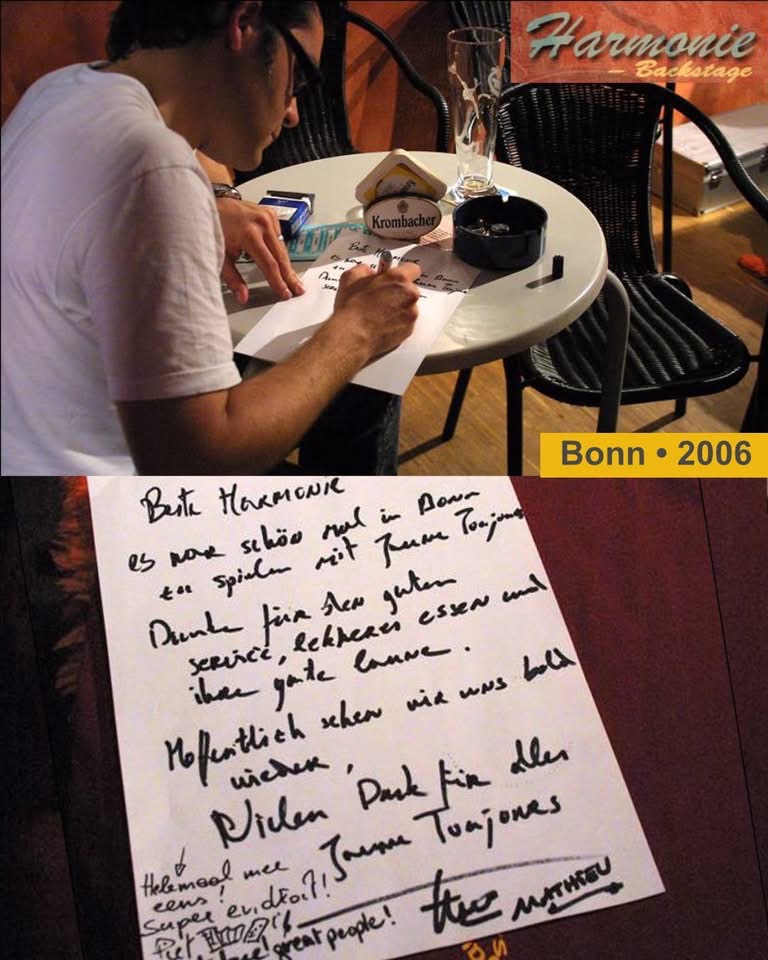 Harmonie
– Backstage
Krombacher
Bonn • 2006
Beste HARMONIE
es war schön mal in Bonn
zu spielen mit Jaune Toujours
Danke für den guten
service, lekkeres essen und
ihre gute laune.
Hoffentlich sehen wir uns bald
wieder,
Vielen Dank für alles
Jaune Toujours
Helemaal mee
eens!
Super
Piet
great people!
MATHIEU